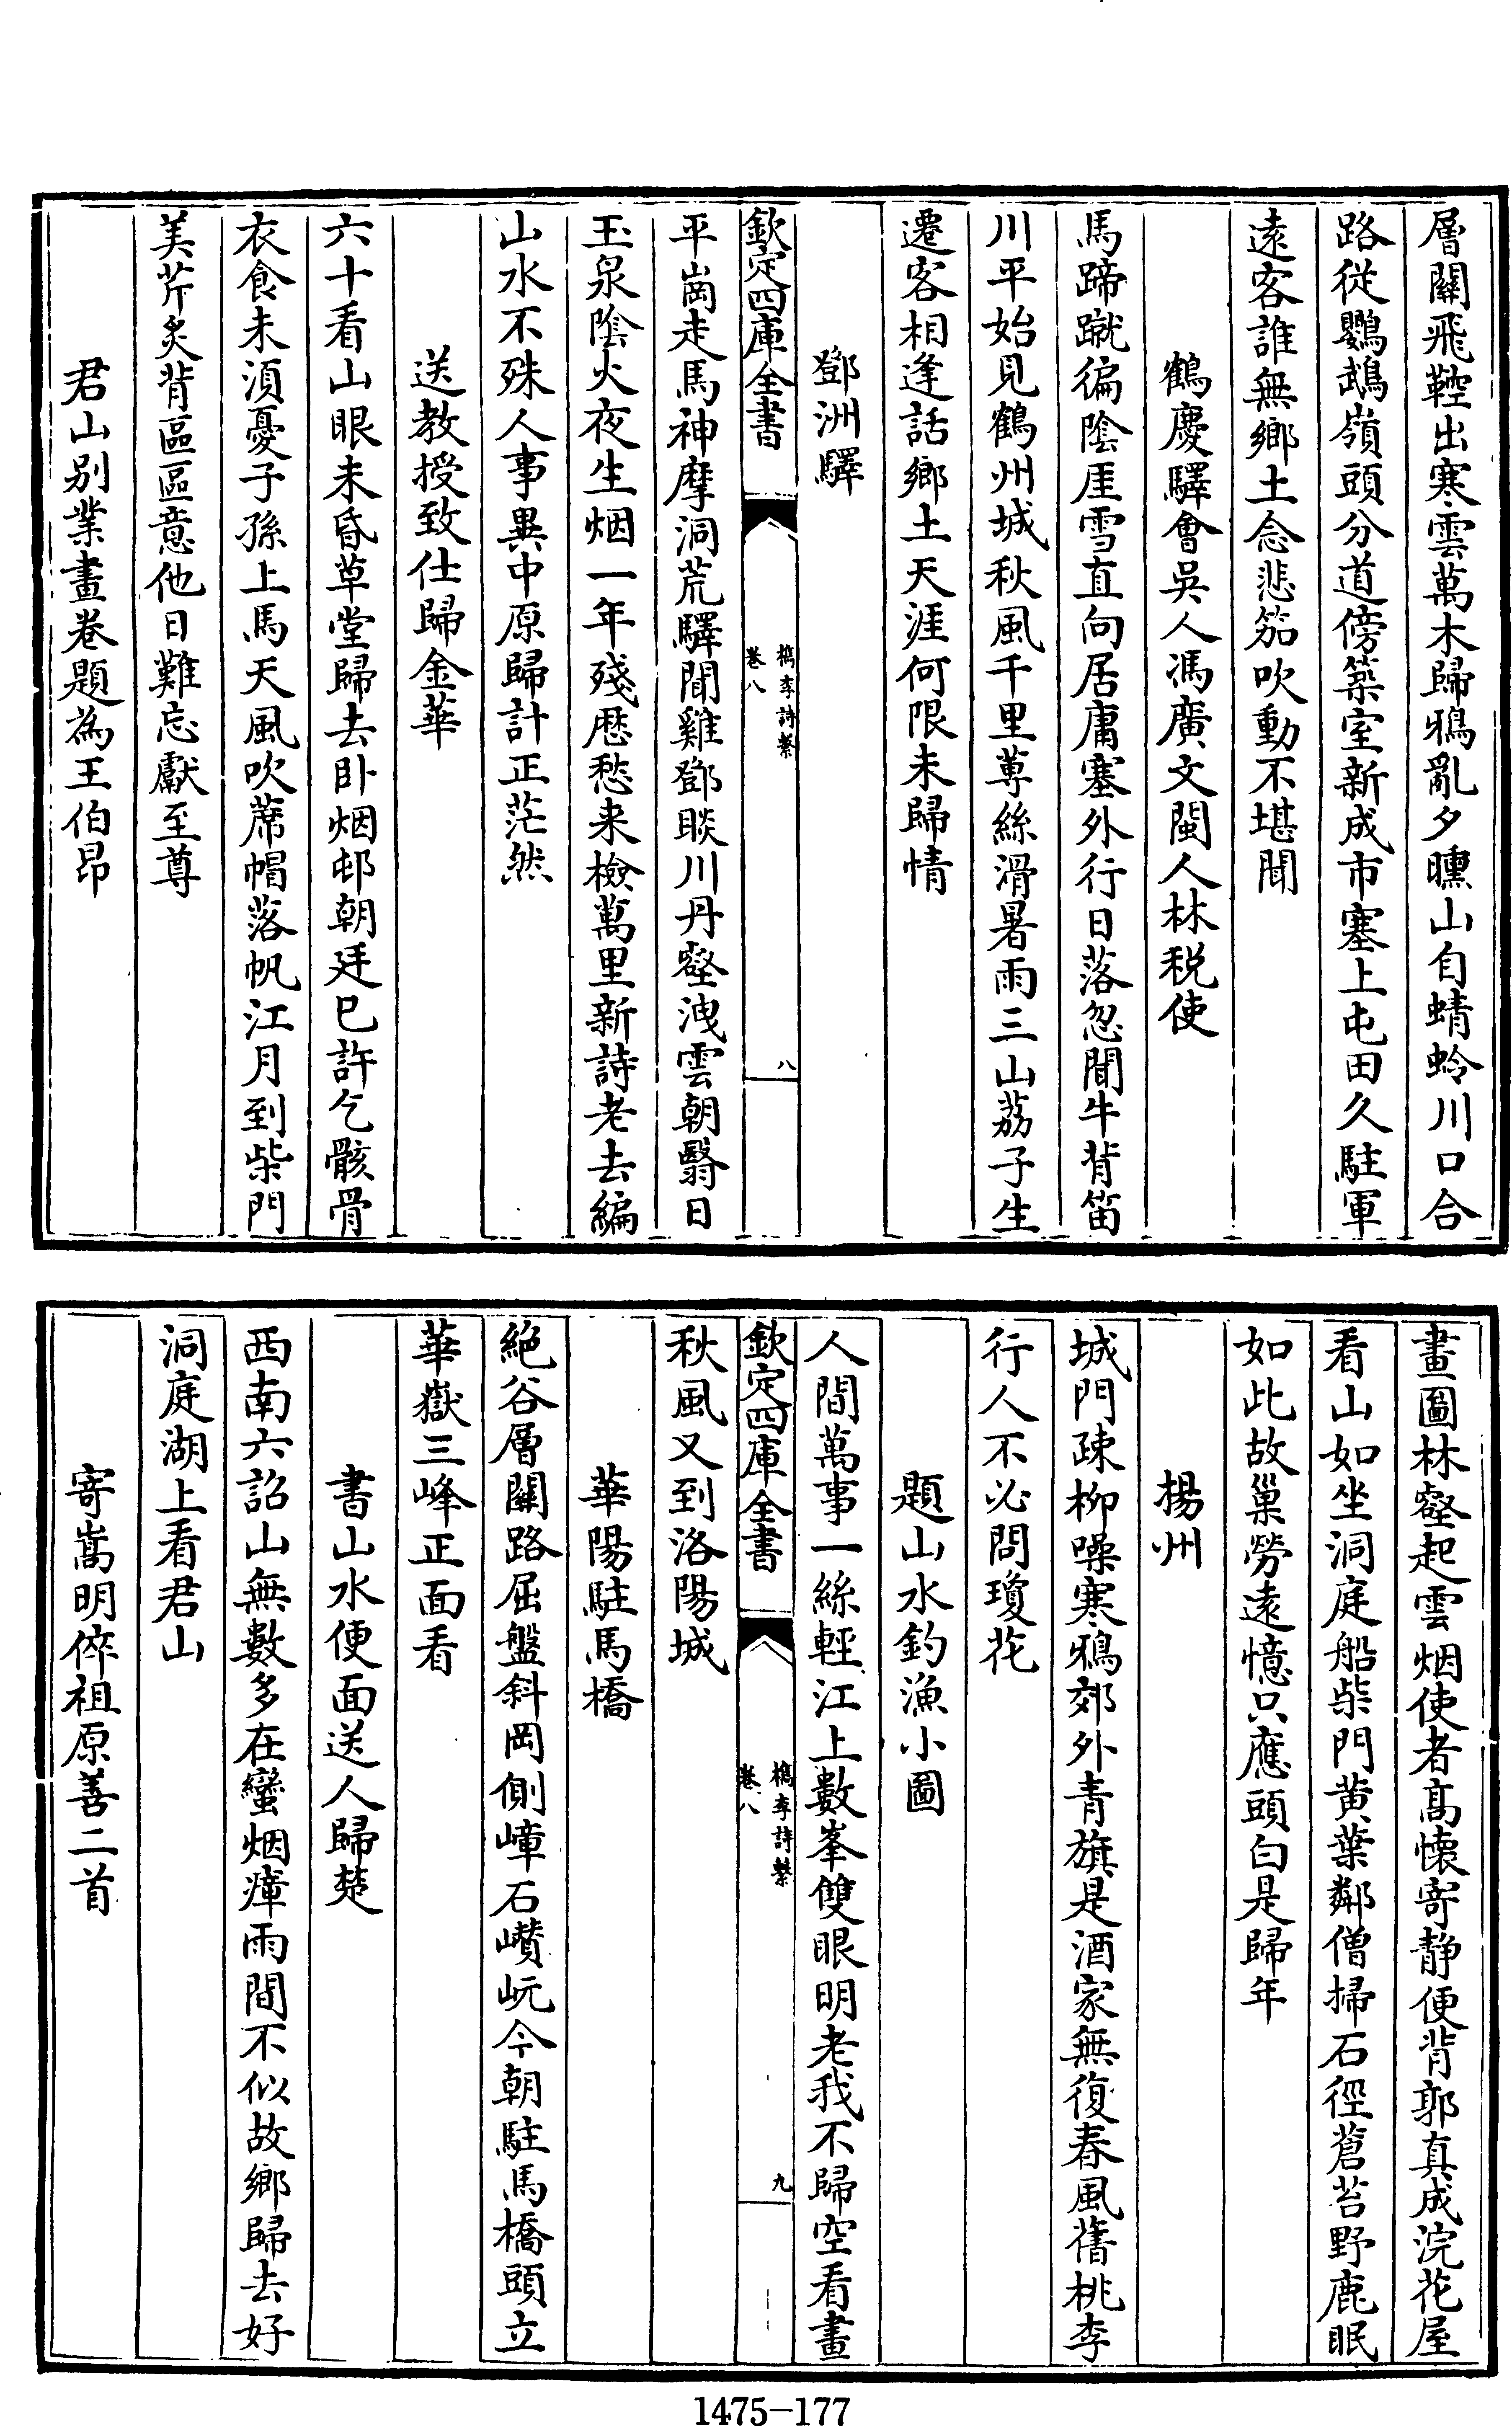 層關飛鞚出寒雲萬木歸鴉亂夕曛山自蜻蛉川口合
路從鸚鵡嶺頭分道傍築室新成市塞上屯田久駐軍
遠客誰無鄉土念悲笳吹動不堪聞
鶴慶驛會吳人馮廣文閩人林稅使
馬蹄蹴徧陰厓雪直向居庸塞外行日落忽聞牛背笛
川平始見鶴州城秋風千里蓴絲滑暑雨三山荔子生
遷客相逢話鄉土天涯何限未歸情
鄧洲驛
欽定四庫全書
檇李詩繫
卷八
八
平崗走馬神摩洞荒驛聞雞鄧睒川丹壑洩雲朝翳日
玉泉陰火夜生烟一年殘歴愁来檢萬里新詩老去編
山水不殊人事異中原歸計正茫然
送教授致仕歸金華
六十看山眼未昏草堂歸去卧烟邨朝廷已許乞骸骨
衣食未須憂子孫上馬天風吹蓆帽落帆江月到柴門
美芹炙背區區意他日難忘獻至尊
君山别業畫卷題為王伯昂
畫圖林壑起雲烟使者髙懐寄静便背郭真成浣花屋
看山如坐洞庭船柴門黄葉鄰僧掃石徑蒼苔野鹿眠
如此故巢勞遠憶只應頭白是歸年
揚州
城門疎柳噪寒鴉郊外青旗是酒家無復春風舊桃李
行人不必問瓊花
題山水釣漁小圖
人間萬事一絲輕江上數峯雙眼明老我不歸空看畫
欽定四庫全書
檇李詩繫
卷八
九
秋風又到洛陽城
華陽駐馬橋
絶谷層關路屈盤斜岡側嶂石巑岏今朝駐馬橋頭立
華嶽三峰正面看
書山水便面送人歸楚
西南六詔山無數多在蠻烟瘴雨間不似故鄉歸去好
洞庭湖上看君山
寄嵩明倅祖原善二首
1475-177